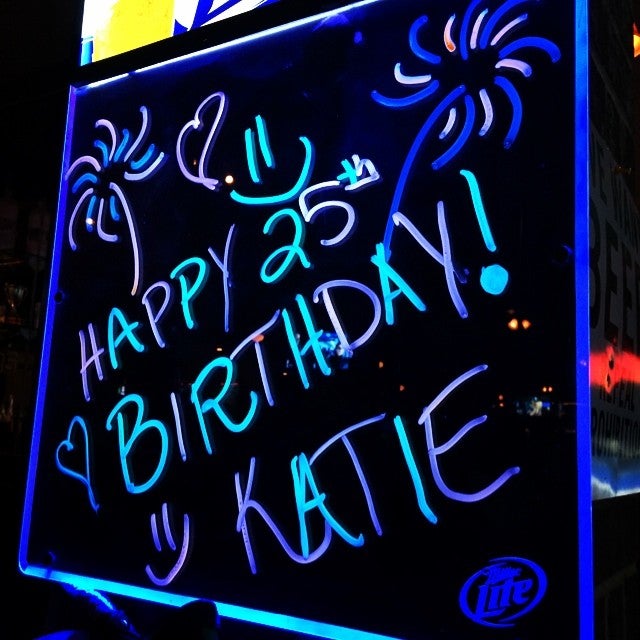 HAPPY 25th
BIRTHDAY!
KATIE
Miller
Lite